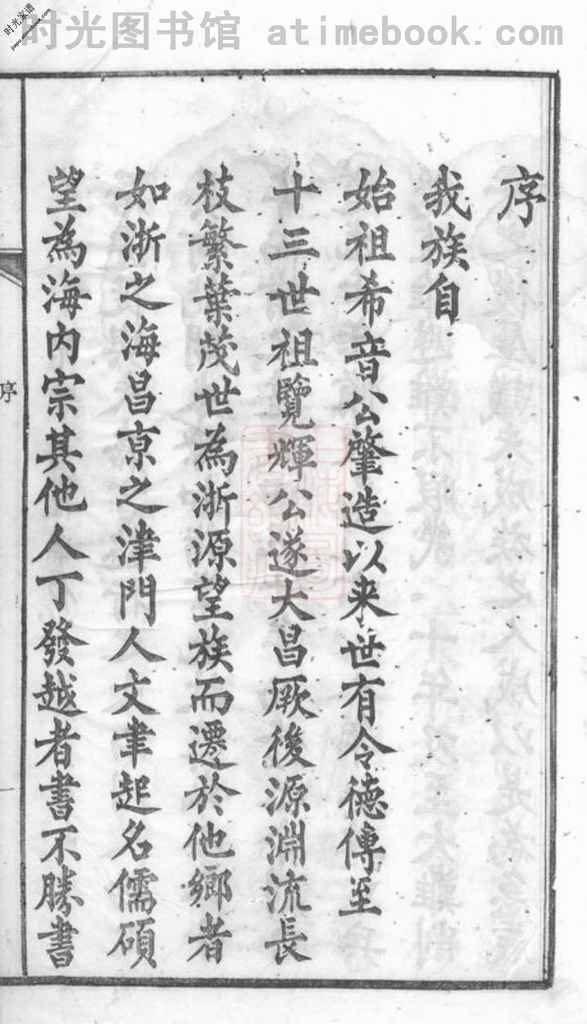 时光图书馆 atimebook.com
时光家谱
序
我族自
始祖希音公肇造以来世有令德傳至
十三世祖覽輝公遂大昌厥後源淵流長
枝繁葉茂世為浙源望族而遷於他鄉者
如浙之海昌京之津門人文聿起名儒碩
望為海內宗其他人丁發越者書不勝書
序